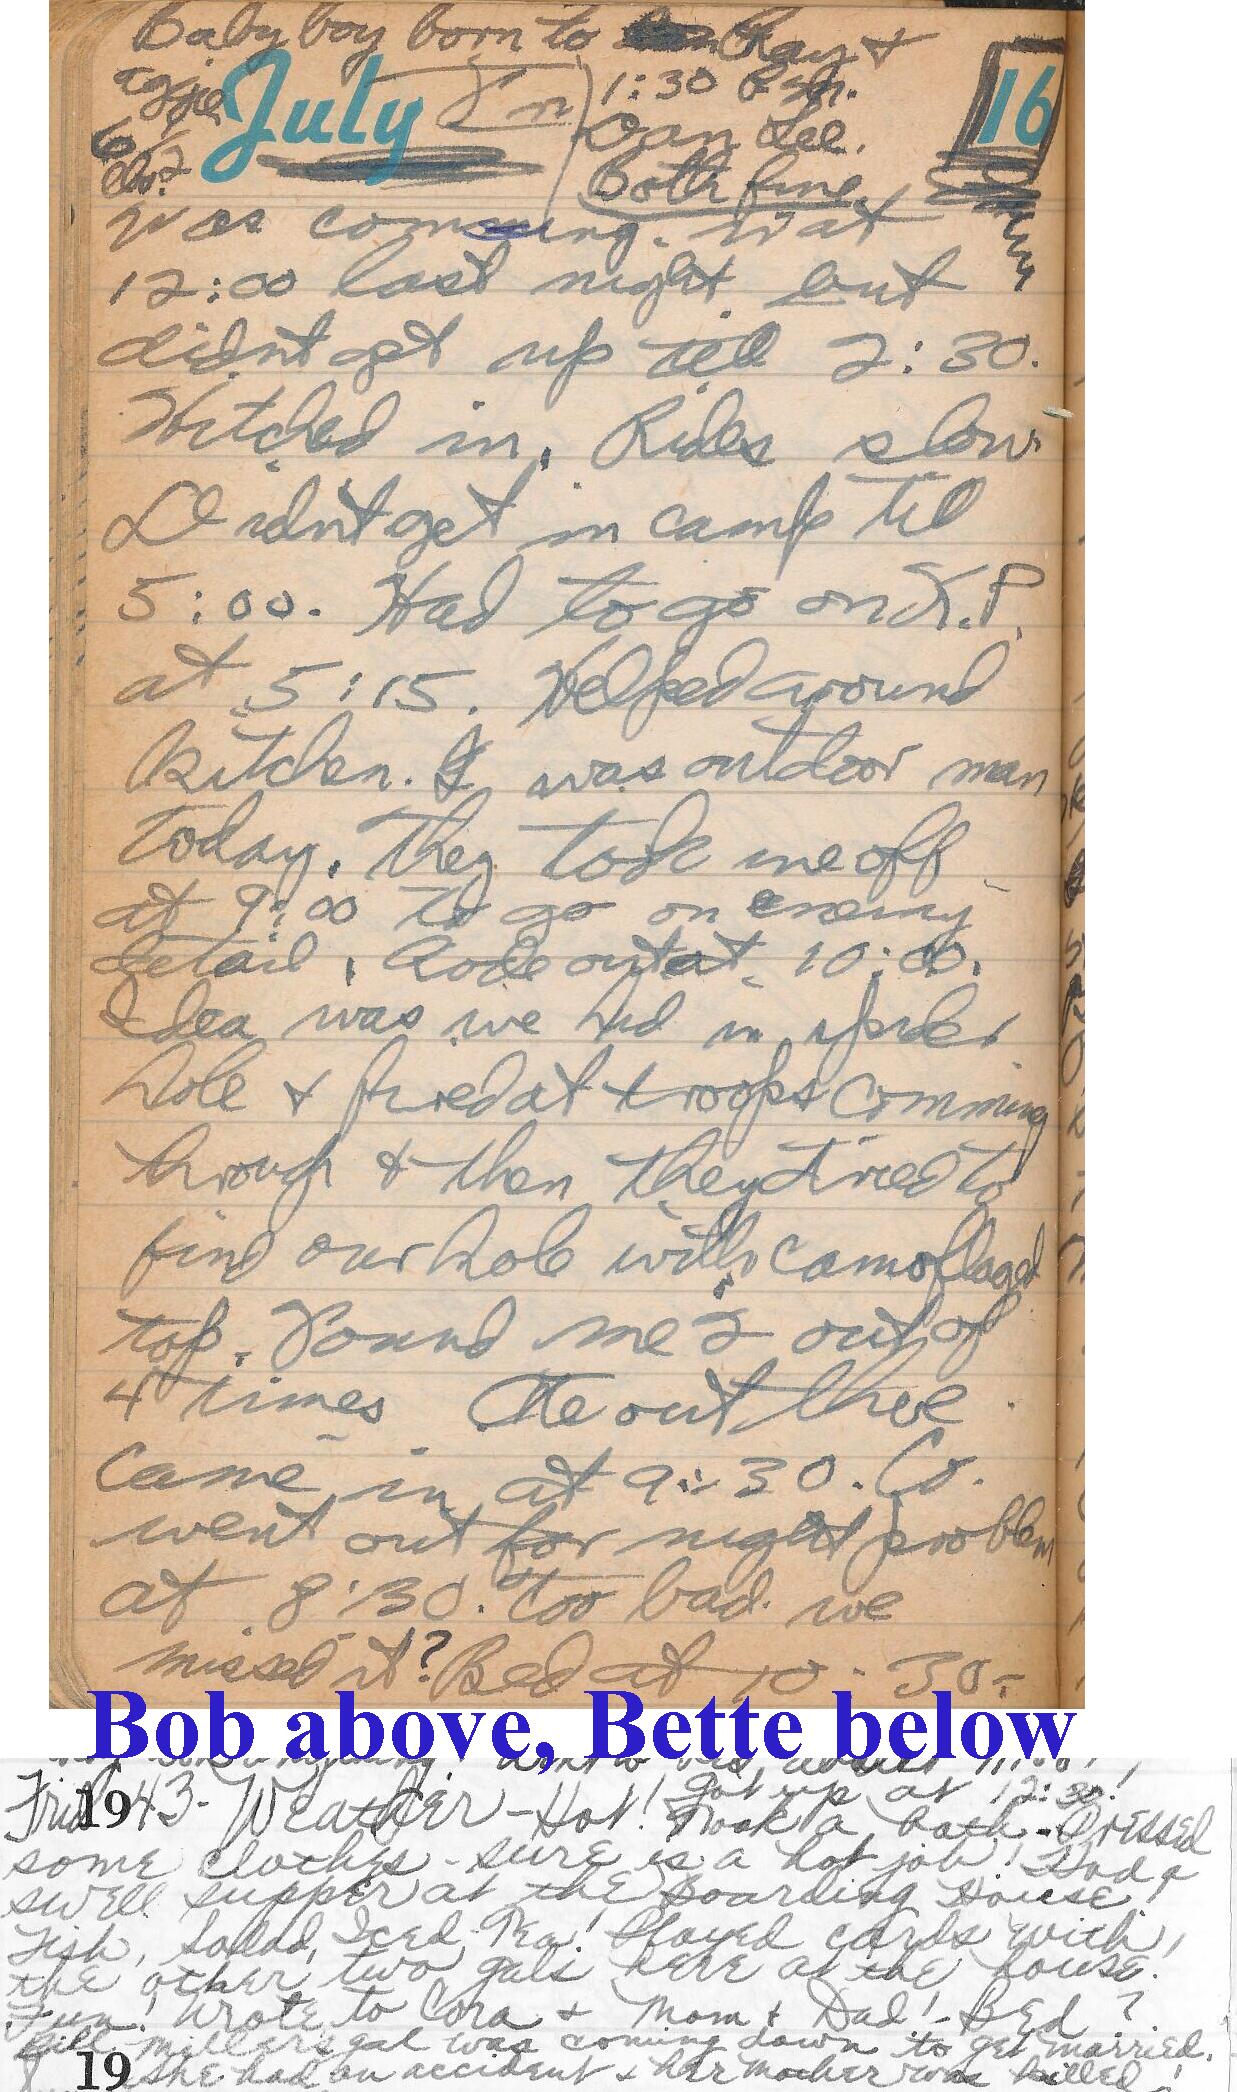 Baby boy born to Ray &
aggie
July
1:30 P.M.
16
Dan Lee.
6 1/2
lbs.
Both fine.
was comming. in at
12:00 last night but
didnt get up till 2:30.
Hitched in. Rides slow
Didnt get in camp till
5:00. Had to go on K.P.
at 5:15. Helped around
kitchen. I was outdoor man
today. They took me off
at 9:00 to go on enemy
detail. Rode out at 10:00.
Idea was we hid in spider
hole & fired at troops comming
through & then they tried to
find our hole with camoflaged
top. Found me 2 out of
4 times Ate out there.
Came in at 9:30. Co.
went out for night problem
at 8:30. Too bad we
missed it? Bed at 10:30-
Bob above, Bette below
Frid 1943- Weather-Hot! Got up at 12:30.
Took a bath - Dressed
some clothes - sure is a hot job! Had a
swell supper at the Boarding House!
Fish, Salad, Iced Tea! Played cards with
the other two gals here at the house.
Fun! Wrote to Cora & Mom & Dad! - Bed?
Bill Miller's gal was coming down to get married.
19 She had an accident & her mother was killed!